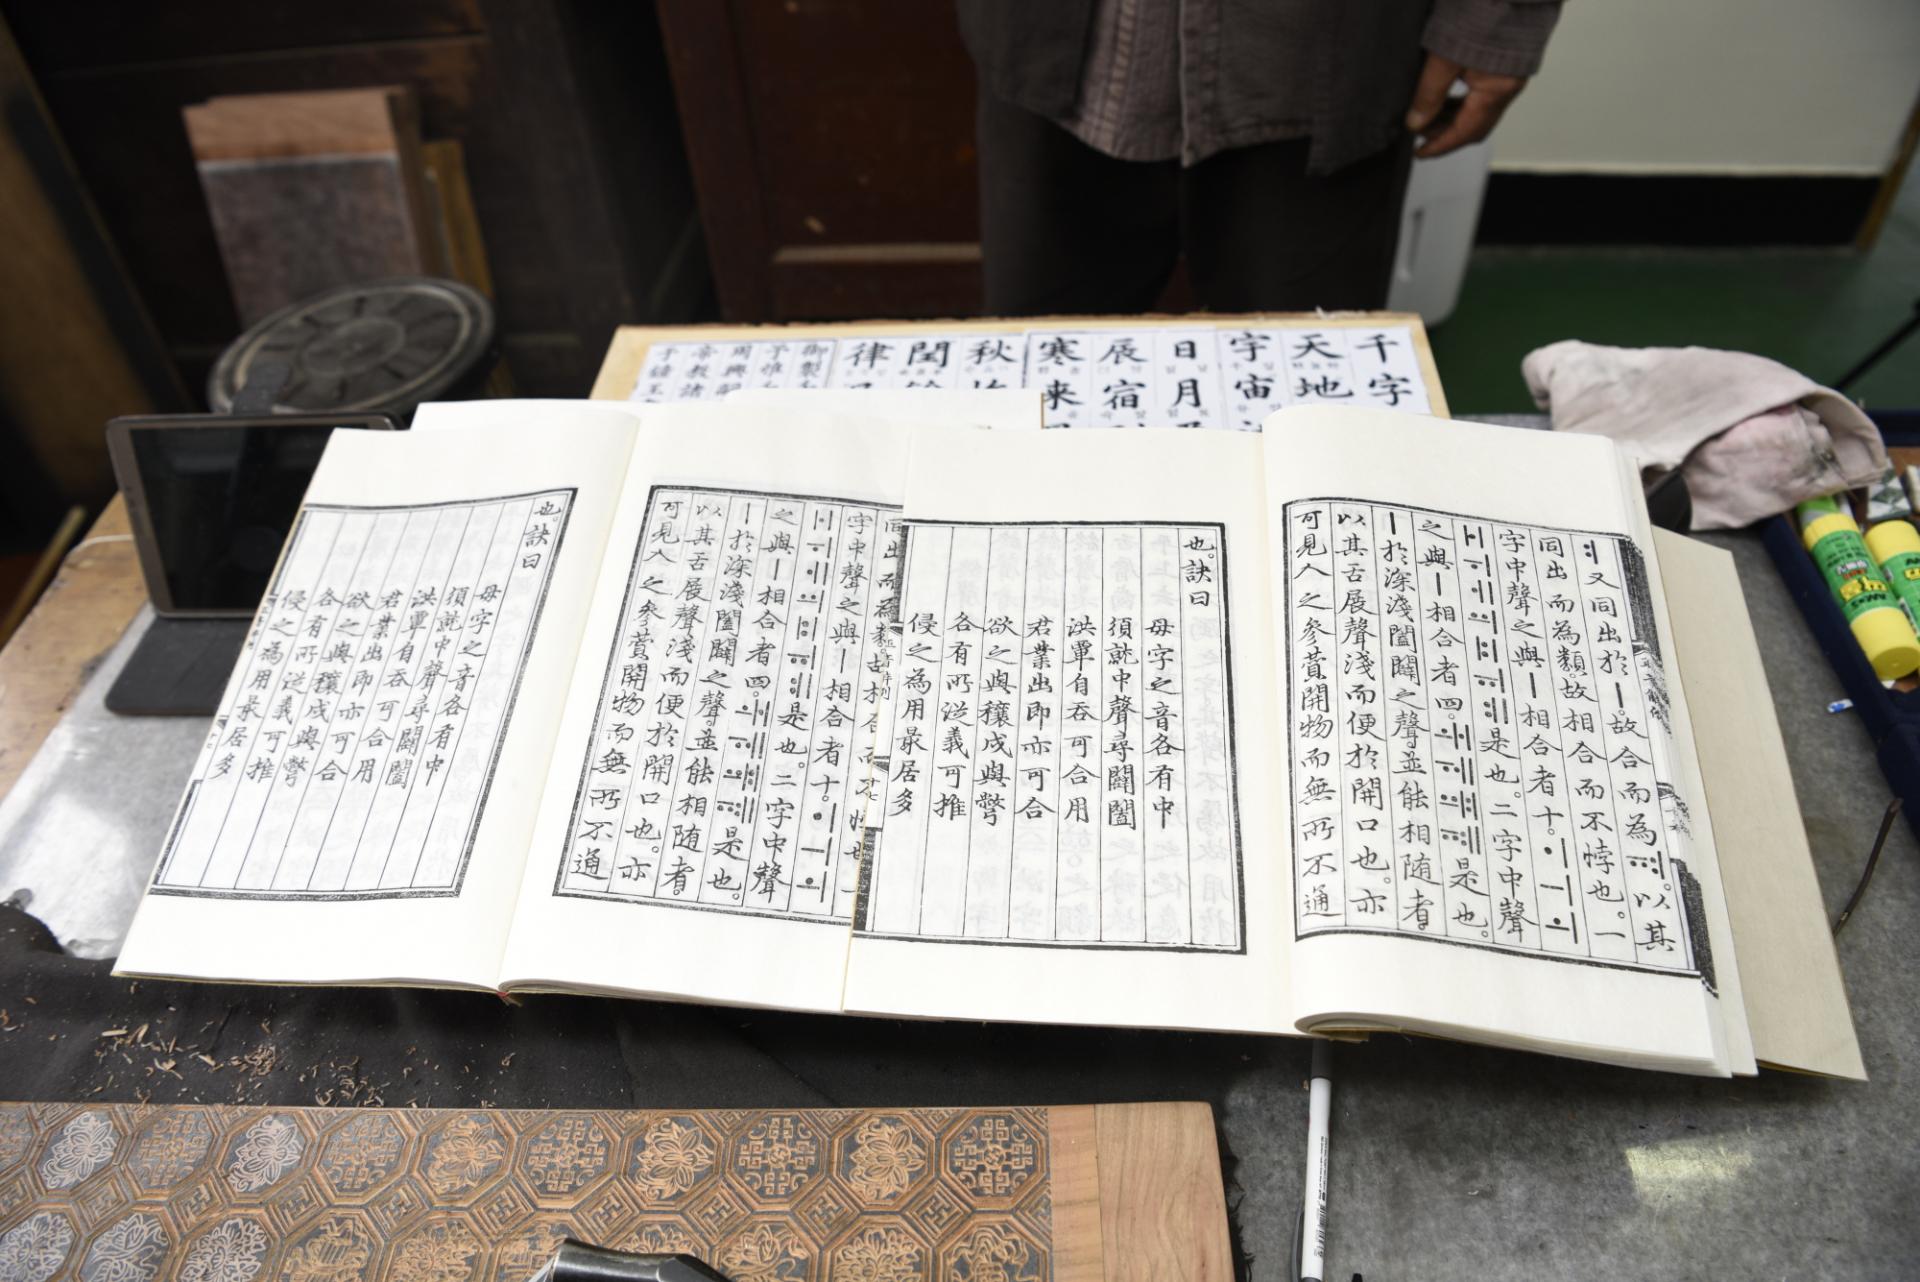 千字
天地
宇宙
日月
辰宿
寒来
秋
閏
律
御製
周興嗣
帝教諸
子鍾王
ㅕ又同出於ㅣ。故合而為ㆊ。以其
同出而為類。故相合而不悖也。一
字中聲之與ㅣ相合者十。ㆎㅢㅚ
ㅐㅟㅔㆉㅒㆌㅖ是也。二字中聲
之與ㅣ相合者四。ㅙㅞㆈㆋ是也。
ㅣ於深淺闔闢之聲。並能相隨者。
以其舌展聲淺而便於開口也。亦
可見人之參贊開物而無所不通
也。訣曰
母字之音各有中
須就中聲尋闢闔
洪覃自呑可合用
君業出即亦可合
欲之與穰戌與彆
各有所從義可推
侵之為用最居多
同出而為類。故相合而不悖也。一
字中聲之與ㅣ相合者十。ㆎㅢㅚ
ㅐㅟㅔㆉㅒㆌㅖ是也。二字中聲
之與ㅣ相合者四。ㅙㅞㆈㆋ是也。
ㅣ於深淺闔闢之聲。並能相隨者。
以其舌展聲淺而便於開口也。亦
可見人之參贊開物而無所不通
也。訣曰
母字之音各有中
須就中聲尋闢闔
洪覃自呑可合用
君業出即亦可合
欲之與穰戌與彆
各有所從義可推
侵之為用最居多